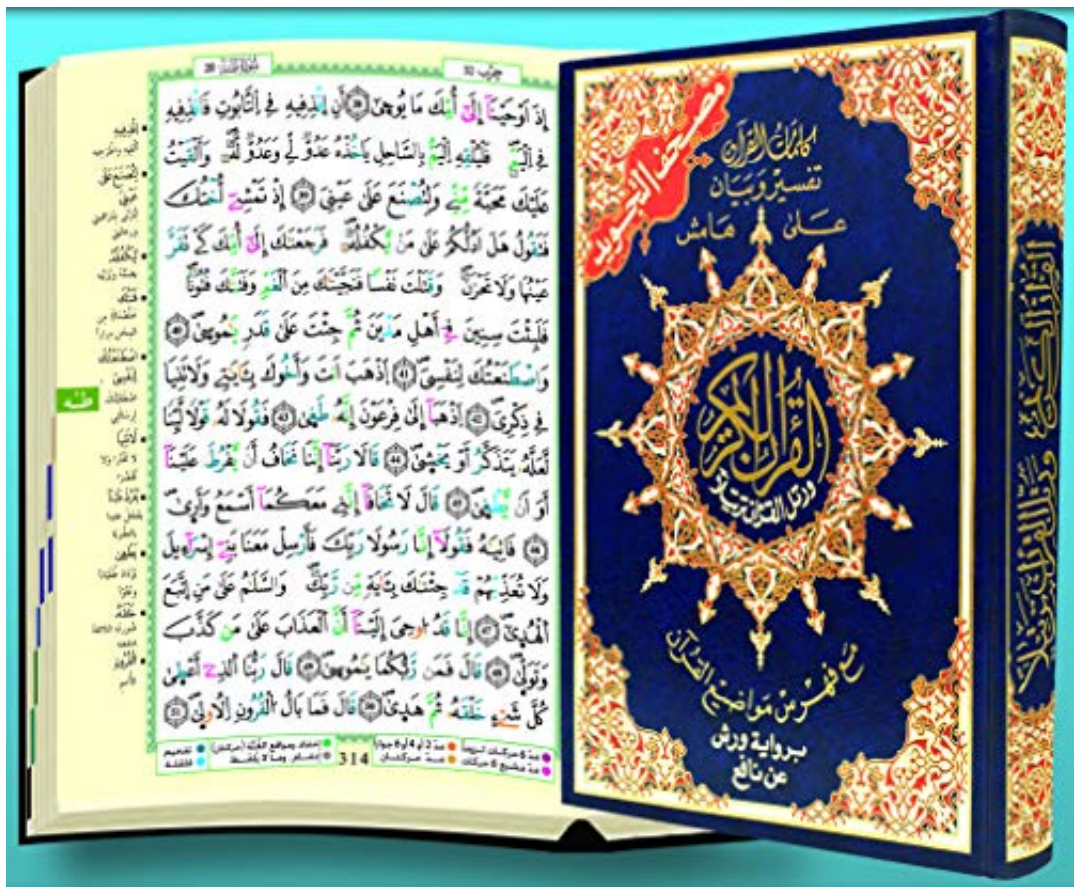 سورة طه 20
حزب 32
إِذَ اَوْحَيْنَآ إِلَىٰٓ أُمِّكَ مَا يُوحَىٰٓ 38 أَنِ اِقْذِفِيهِ فِے اِلتَّابُوتِ فَاقْذِفِيهِ
فِے اِلْيَمِّ فَلْيُلْقِهِ اِلْيَمُّ بِالسَّاحِلِ يَاخُذْهُ عَدُوٌّ لِّے وَعَدُوٌّ لَّهُۥ وَأَلْقَيْتُ
عَلَيْكَ مَحَبَّةً مِّنِّے وَلِتُصْنَعَ عَلَىٰ عَيْنِيَ 39 إِذْ تَمْشِےٓ أُخْتُكَ
فَتَقُولُ هَلَ اَدُلُّكُمْ عَلَىٰ مَنْ يَّكْفُلُهُۥ فَرَجَعْنَٰكَ إِلَىٰٓ أُمِّكَ كَےْ تَقَرَّ
عَيْنُهَا وَلَا تَحْزَنَ وَقَتَلْتَ نَفْساً فَنَجَّيْنَٰكَ مِنَ اَلْغَمِّ وَفَتَنَّٰكَ فُتُوناً
فَلَبِثْتَ سِنِينَ فِےٓ أَهْلِ مَدْيَنَ ثُمَّ جِئْتَ عَلَىٰ قَدَرٍ يَٰمُوسَىٰ 40
وَاصْطَنَعْتُكَ لِنَفْسِيَ 41 اَ۪ذْهَبَ اَنتَ وَأَخُوكَ بِـَٔايَٰتِے وَلَا تَنِيَا
فِے ذِكْرِيَ 42 اَ۪ذْهَبَآ إِلَىٰ فِرْعَوْنَ إِنَّهُۥ طَغَىٰ 43 فَقُولَا لَهُۥ قَوْلاً لَّيِّناً
لَّعَلَّهُۥ يَتَذَكَّرُ أَوْ يَخْشَىٰ 44 قَالَا رَبَّنَآ إِنَّنَا نَخَافُ أَنْ يَّفْرُطَ عَلَيْنَآ
أَوَ اَنْ يَّطْغَىٰ 45 قَالَ لَا تَخَافَآ إِنَّنِے مَعَكُمَآ أَسْمَعُ وَأَرَىٰ
46 فَاتِيَٰهُ فَقُولَآ إِنَّا رَسُولَا رَبِّكَ فَأَرْسِلْ مَعَنَا بَنِےٓ إِسْرَآءِيلَ
وَلَا تُعَذِّبْهُمْ قَدْ جِئْنَٰكَ بِـَٔايَةٍ مِّن رَّبِّكَ وَالسَّلَٰمُ عَلَىٰ مَنِ اِتَّبَعَ
اَلْهُدَىٰٓ 47 إِنَّا قَدُ ا۟وحِيَ إِلَيْنَآ أَنَّ اَلْعَذَابَ عَلَىٰ مَن كَذَّبَ
وَتَوَلَّىٰ 48 قَالَ فَمَن رَّبُّكُمَا يَٰمُوسَىٰ 49 قَالَ رَبُّنَا اَلذِےٓ أَعْطَىٰ
كُلَّ شَےْءٍ خَلْقَهُۥ ثُمَّ هَدَىٰ 50 قَالَ فَمَا بَالُ اُلْقُرُونِ اِلُاولَىٰ 51
طه
314
مدّ 6 حركات لزوماً
مدّ 2 أو 4 أو 6 جوازاً
إخفاء ومواقع الغُنَّة (حركتان)
تفخيم
مدّ مشبع 6 حركات
مدّ حركتان
إدغام، وما لا يُلفَظ
قلقلة
مصحف التجويد
كلمات القرآن
تفسير وبيان
على هامش
القرآن الكريم
ورتل القرآن ترتيلا
مع فهرس مواضيع القرآن
برواية ورش
عن نافع
القرآن الكريم ورتل القرآن ترتيلا